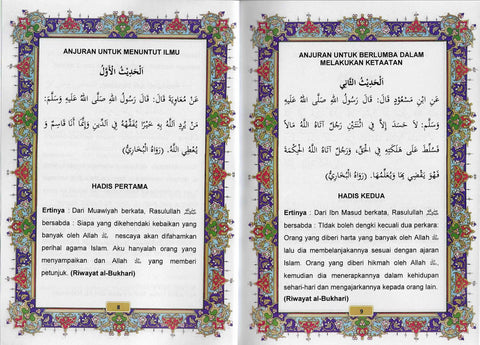 ANJURAN UNTUK MENUNTUT ILMU
اَلْحَدِيْثُ الْأَوَّلُ
عَنْ مُعَاوِيَةَ قَالَ: قَالَ رَسُولُ اللهِ صَلَّى اللهُ عَلَيْهِ وَسَلَّمَ:
مَنْ يُرِدِ اللهُ بِهِ خَيْرًا يُفَقِّهْهُ فِي الدِّينِ وَإِنَّمَا أَنَا قَاسِمٌ وَ
يُعْطِي اللهُ. (رَوَاهُ الْبُخَارِيُّ)
HADIS PERTAMA
Ertinya : Dari Muawiyah berkata, Rasulullah ﷺ
bersabda : Siapa yang dikehendaki kebaikan yang
banyak oleh Allah ﷻ nescaya akan difahamkan
perihal agama Islam. Aku hanyalah orang yang
menyampaikan dan Allah ﷻ yang memberi
petunjuk. (Riwayat al-Bukhari)
8
ANJURAN UNTUK BERLUMBA DALAM
MELAKUKAN KETAATAN
اَلْحَدِيْثُ الثَّانِي
عَنِ ابْنِ مَسْعُوْدٍ قَالَ: قَالَ رَسُولُ اللهِ صَلَّى اللهُ عَلَيْهِ
وَسَلَّمَ: لَا حَسَدَ إِلَّا فِي اثْنَتَيْنِ رَجُلٌ آتَاهُ اللهُ مَالاً
فَسُلِّطَ عَلَى هَلَكَتِهِ فِي الْحَقِّ، وَرَجُلٌ آتَاهُ اللهُ الْحِكْمَةَ
فَهُوَ يَقْضِي بِهَا وَيُعَلِّمُهَا. (رَوَاهُ الْبُخَارِيُّ)
HADIS KEDUA
Ertinya : Dari Ibn Masud berkata, Rasulullah ﷺ
bersabda : Tidak boleh dengki kecuali dua perkara:
Orang yang diberi harta yang banyak oleh Allah ﷻ
lalu dia membelanjakannya sesuai dengan ajaran
Islam. Orang yang diberi hikmah oleh Allah ﷻ
kemudian dia menerapkannya dalam kehidupan
sehari-hari dan mengajarkannya kepada orang lain.
(Riwayat al-Bukhari)
9